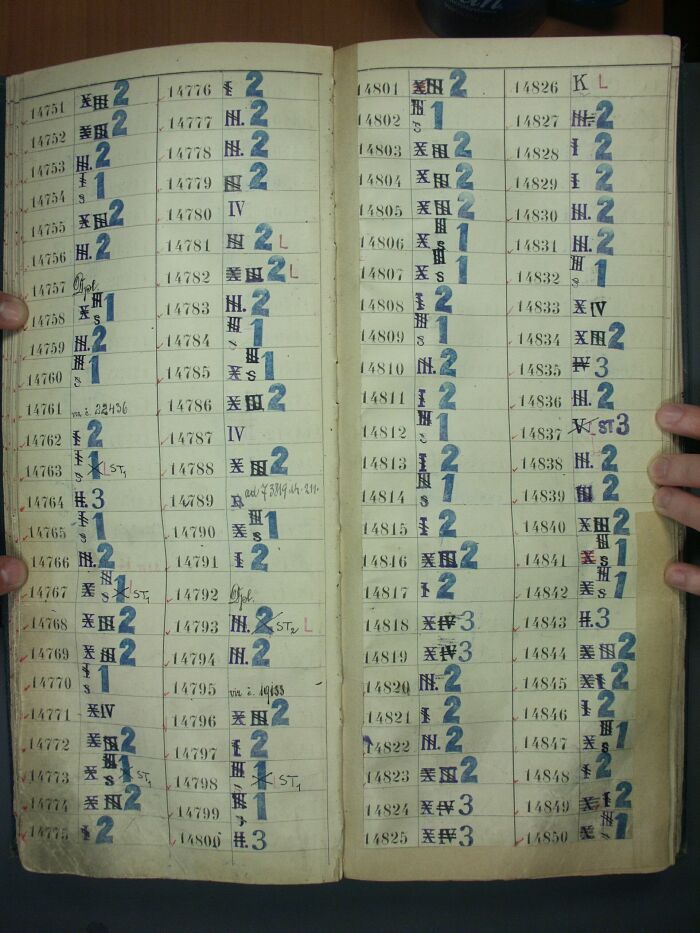 14751 X III 2
14752 X III 2
14753 III. 2
14754 I s 1
14755 X III 2
14756 III. 2
14757 Dpl.
14758 X III s 1
14759 III. 2
14760 III s 1
14761 22436
14762 I 2
14763 I s 1 L ST1
14764 II. 3
14765 I s 1
14766 III. 2
14767 X III s 1 ST1
14768 X III 2
14769 X III 2
14770 I s 1
14771 X IV
14772 X III 2
14773 X III s 1 ST1
14774 X III 2
14775 I 2
14776 I 2
14777 III. 2
14778 III. 2
14779 III 2
14780 IV
14781 III 2 L
14782 X III 2 L
14783 III. 2
14784 III s 1
14785 X III s 1
14786 X III 2
14787 IV
14788 X III 2
14789
14790 X III s 1
14791 I 2
14792 Dpl.
14793 III. 2 ST2 L
14794 III. 2
14795
14796 X III 2
14797 I 2
14798 III 1 ST1
14799 III s 1
14800 II. 3
14801 X III 2
14802 III s 1
14803 X III 2
14804 X III 2
14805 X III 2
14806 X III s 1
14807 X III s 1
14808 I 2
14809 III s 1
14810 III. 2
14811 I 2
14812 III s 1
14813 I 2
14814 III s 1
14815 I 2
14816 X III 2
14817 I 2
14818 X IV 3
14819 X IV 3
14820 III. 2
14821 I 2
14822 III. 2
14823 X III 2
14824 X IV 3
14825 X IV 3
14826 K L
14827 III. 2
14828 I 2
14829 I 2
14830 III. 2
14831 III. 2
14832 III s 1
14833 X IV
14834 X III 2
14835 IV 3
14836 III. 2
14837 V L ST 3
14838 III. 2
14839 III 2
14840 X III 2
14841 X III s 1
14842 X III s 1
14843 II. 3
14844 X III 2
14845 X I 2
14846 I 2
14847 X III s 1
14848 I 2
14849 X I 2
14850 X III s 1